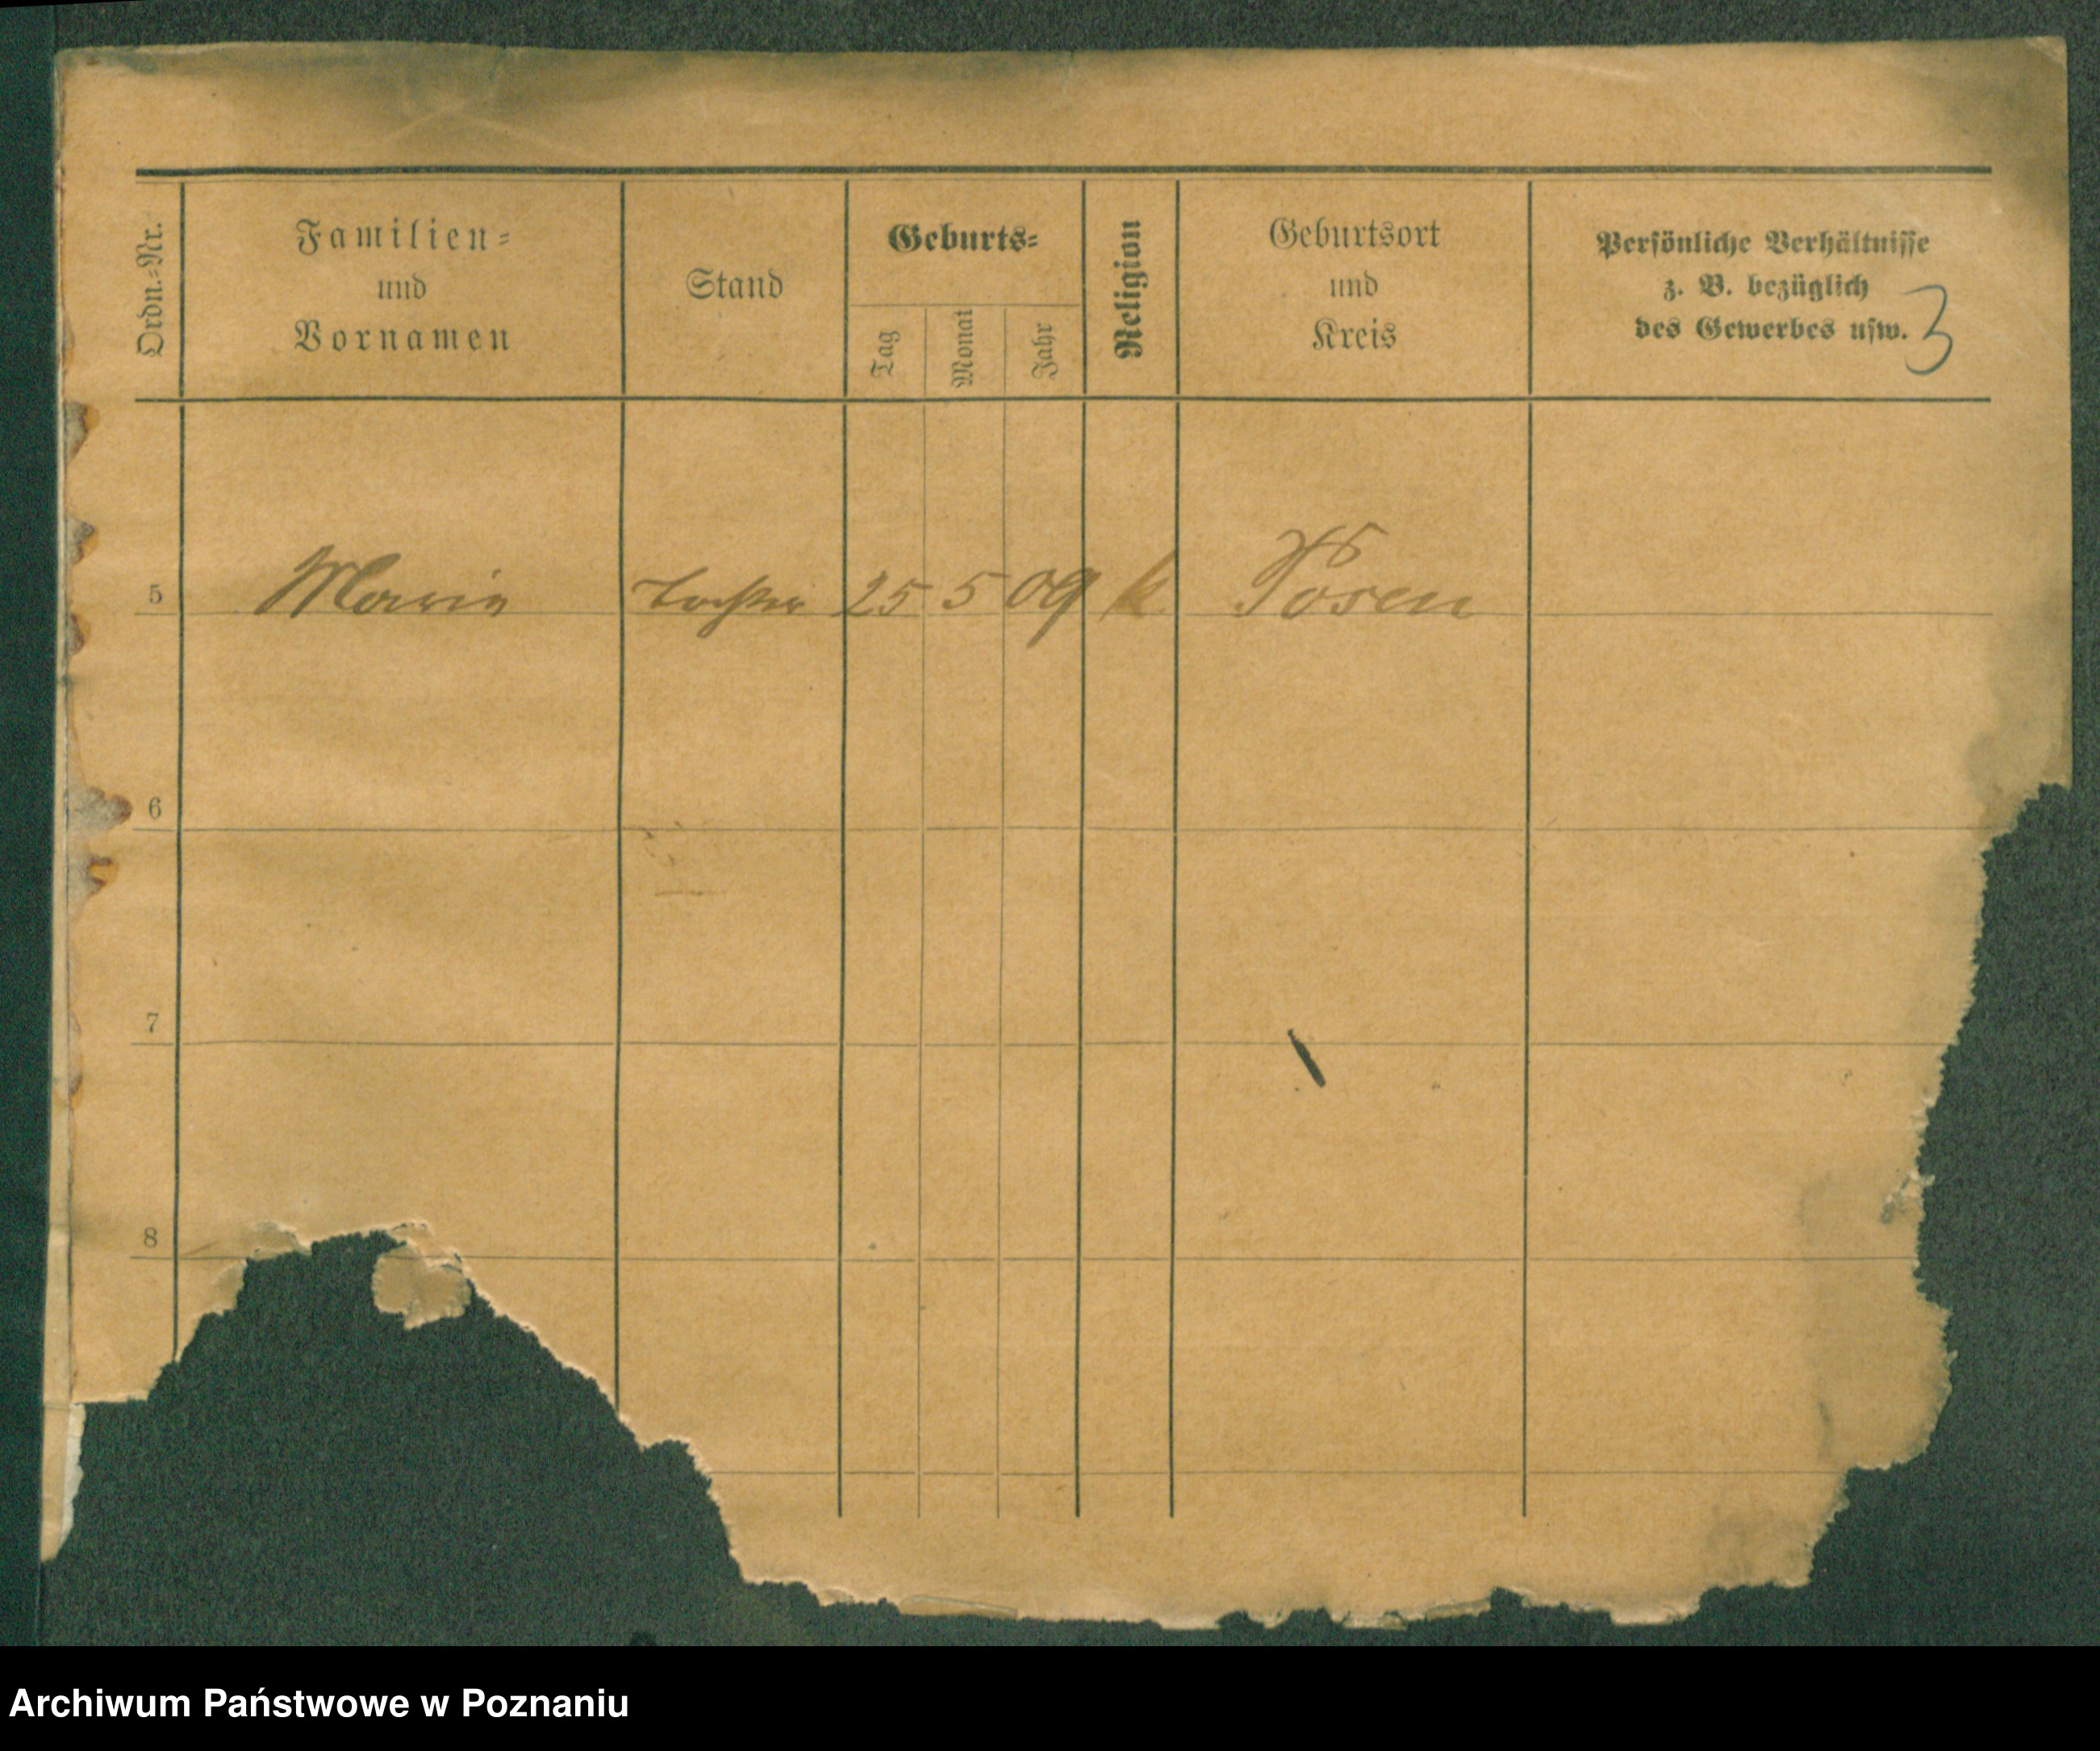 Ordn.-Nr.
Familien-
und
Vornamen
Stand
Geburts-
Tag
Monat
Jahr
Religion
Geburtsort
und
Kreis
Persönliche Verhältnisse
z. B. bezüglich
des Gewerbes usw.
3
5 Marie Tochter 25 5 09 k. Posen
6
7
8
Archiwum Państwowe w Poznaniu